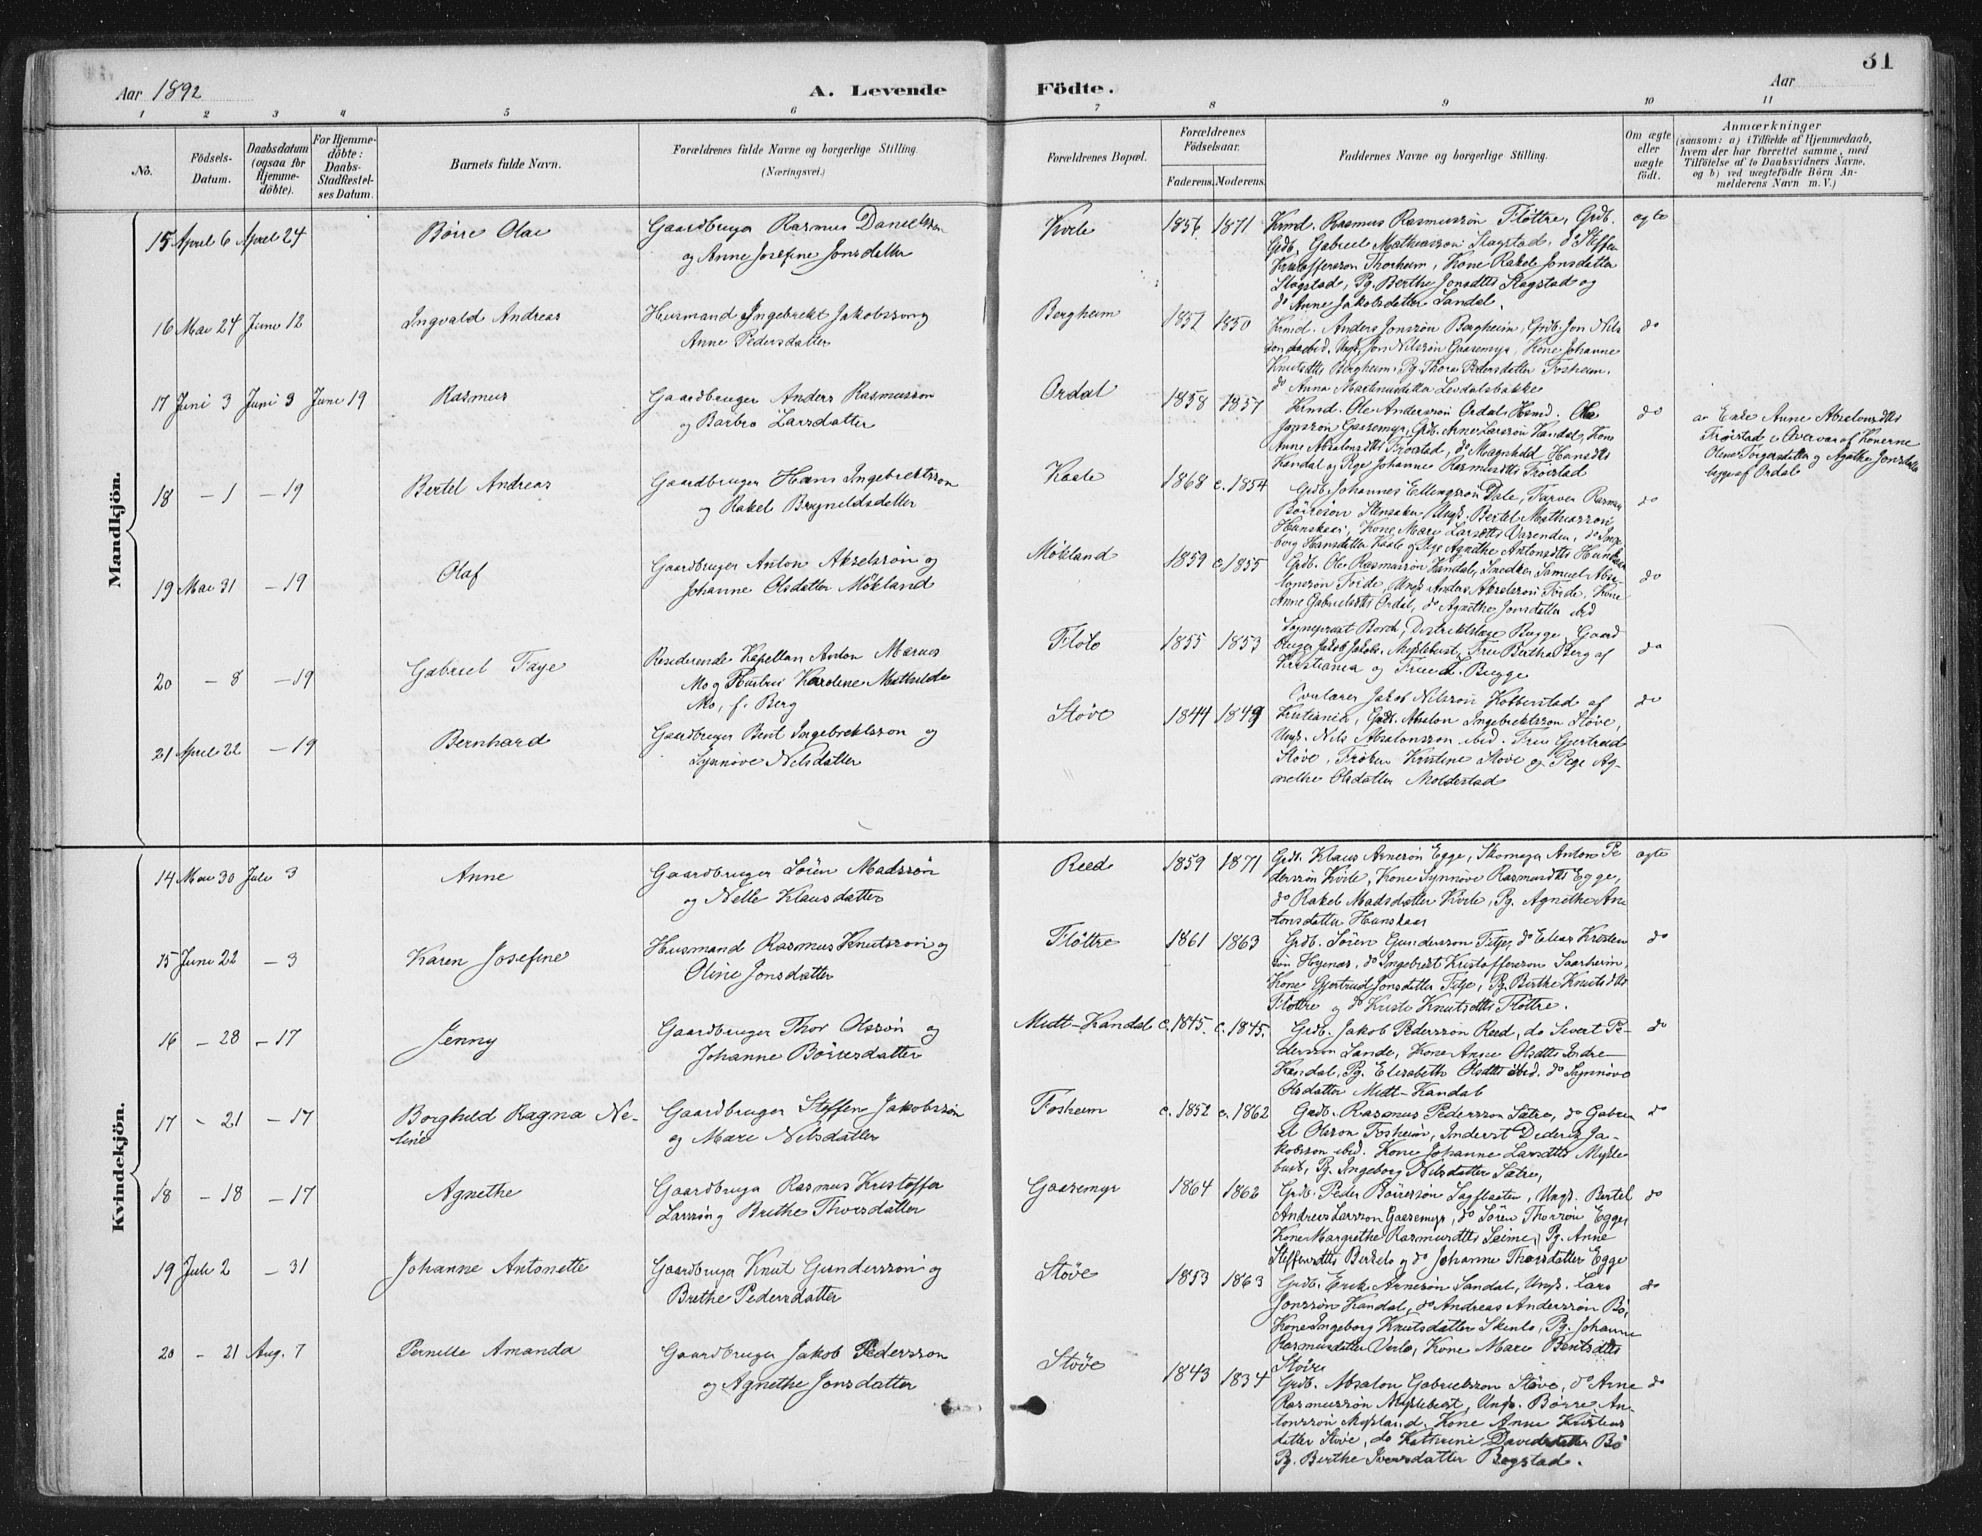 Aar 1892
A. Levende
Födte.
Aar
31
1 2 3 4 5 6 7 8 9 10 11
No.
Födsels-Datum.
Daabsdatum (ogsaa for Hjemme-döbte).
For Hjemme-döbte: Daabs-Stadfestel-ses Datum.
Barnets fulde Navn.
Forældrenes fulde Navne og borgerlige Stilling.
(Næringsvei.)
Forældrenes Bopæl.
Forældrenes Födselsaar.
Faderens. Moderens.
Faddernes Navne og borgerlige Stilling.
Om ægte eller uægte födt.
Anmærkninger
(saasom: a) i Tilfælde af Hjemmedaab,
hvem der har forrettet samme, med
Tilföielse af to Daabsvidners Navne,
og b) ved uægtefödte Börn An-
melderens Navn m. V.)
Mandkjön.
15 April 6 April 24 Börre Olai
Gaardbruger Rasmus Danielssen
og Anne Josefine Jonsdatter
Kvile 1856 1871
Krmd. Rasmus Rasmussön Flöttre, Grdb.
Grdb. Gabriel Mathiassön Slagstad, do Steffen
Kristofferssön Thorheim, Kone Rakel Jonsdatter
Slagstad, Pg. Berthe Jonsdtts Slagstad og
do Anne Jakobsdatter Sandal.
ægte
16 Mai 24 Juni 12 Ingvald Andreas
Husmand Ingebrekt Jakobssön og
Anne Pedersdatter
Bergheim 1857 1850
Krmd. Anders Jonssön Bergheim, Grdb. Jon Nils-
sön ibid. Ungk. Jon Nilssön Gaasemyr, Kone Johanne
Knutsdtts Bergheim, Pg. Thora Pedersdatter Fosheim,
do Anna Martinusdatter Levdalsbakke
do
17 Juni 3 Juni 9 Juni 19 Rasmus
Gaardbruger Anders Rasmussön
og Barbro Larsdatter
Ordal 1858 1857
Krmd. Ole Anderssön Ordal, Hsmd. Ole
Jonssön Gaasemyr, Grdb. Arne Larssön Kandal, Kone
Anne Absalonsdtts Fröistad, do Magnhild Hansdts
Kandal og Pge Johanne Rasmusdtts Fröistad
do
av Enke Anne Absalonsdtts
Fröistad i Overvær af Konerne
Oline Ingersdatter og Agathe Jonsdatter
begge af Ordal
18 – 1 – 19 Bertel Andreas
Gaardbruger Hans Ingebrektssön
og Rakel Brynildsdatter
Kaale 1868 c. 1854
Grdb. Johannes Ellingssön Dale, Farver Rasmus
Börressön Stensaker, Ungk. Bertel Mathiassön
Hunskaar, Kone Mari Larsdtts Varenden, do Inge-
borg Hansdatter Kaale og Pige Agnethe Antonsdtts Hunskaar
do
19 Mai 31 – 19 Olaf
Gaardbruger Anton Akselssön og
Johanne Olsdatter Mökland
Mökland 1859 c. 1855
Grdb. Ole Rasmussön Kandal, Snedker Samuel Absa-
lonssön Förde, Ungk. Anders Akselssön Förde, Kone
Anne Gabrielsdtts Ordal, do Agnethe Jonsdatter ibid
do
20 – 8 – 19 Gabriel Faye
Residerende Kapellan Anton Marius
Mo og Hustru Karoline Mathilde
Mo, f. Berg
Flölo 1855 1853
Sogneprest Borch, Distriktslæge Bugge, Gaard-
bruger Jakob Jakobs. Myklebust, Frue Bertha Berg af
Kristiania og Frue L. Bugge
do
21 April 22 – 19 Bernhard
Gaardbruger Bent Ingebrektssön og
Synnöve Nilsdatter
Stöve 1844 1849
Cvulærer Jakob Nilssön Kobberstad af
Kristiania, Grdb. Absalon Ingebrektsson Stöve,
Ungk. Nils Absalonssön ibid. Frue Gjertrud
Stöve, Fröken Kristine Stöve og Pige Ag-
nethe Olsdatter Moldestad
do
Kvindekjön.
14 Mai 30 Juli 3 Anne
Gaardbruger Sören Madssön
og Nille Klausdatter
Reed 1859 1871
Grdb. Klaus Arnesön Egge, Skomager Anton Pe-
derssön Kvile, Kone Synnöve Rasmusdtts Egge,
do Rakel Madsdatter Kvile, Pg. Agnethe An-
tonsdatter Hunskaar
ægte
15 Juni 22 – 3 Karen Josefine
Husmand Rasmus Knutssön og
Oline Jonsdatter
Flöttre 1861 1863
Grdb. Sören Gunderssön Fitje, do Elias Kristen-
sön Hojenæs, do Ingebrekt Kristofferssön Saarheim,
Kone Gjertrud Jonsdatter Fitje, Pg. Birthe Knutsdtts
Flöttre og do Kristi Knutsdtts Flöttre.
do
16 – 28 – 17 Jenny
Gaardbruger Thor Olssön og
Johanne Börresdatter
Midt-Kandal c. 1845. c. 1845.
Grdb. Jakob Pederssön Reed, do Sivert Pe-
derssön Sande, Kone Anne Olsdtts Indre-
Kandal, Pg. Elisabeth Olsdtts ibid. do Synnöve
Olsdatter Midt-Kandal
do
17 – 21 – 17 Borghild Ragna Ne-
line
Gaardbruger Steffen Jakobssön
og Mari Nilsdatter
Fosheim c. 1852 c. 1862
Grdb. Rasmus Pederssön Sætre, do Gabri-
el Olssön Fosheim, Inderst Diderik Ja-
kobssön ibid. Kone Johanne Larsdtts Mykle-
bust, Pg. Ingeborg Nilsdatter Sætre,
do
18 – 18 – 17 Agnethe
Gaardbruger Rasmus Kristoffer
Larssön og Brithe Thorsdatter
Gaasemyr 1864 1862
Grdb. Peder Börressön Sagflaaten, Ungk. Bertel
Andreas Larssön Gaasemyr, do Sören Thorssön Egge,
Kone Margrethe Rasmusdtts Seime, Pg. Anne
Steffensdtts Birkelo og do Johanne Thorsdatter Egge
do
19 Juli 2 – 31 Johanne Antonette
Gaardbruger Knut Gunderssön og
Brithe Pedersdatter
Stöve 1853 1863
Grdb. Erik Arnesön Sandal, Ungk. Lars
Jonssön Kandal, do Andreas Anderssön Bö,
Kone Ingeborg Knutsdatter Skinlo, Pg. Johanne
Rasmusdatter Verlo, Kone Mari Bentsdtts
Stöve
do
20 – 21 Aug. 7 Pernille Amanda
Gaardbruger Jakob Pederssön
og Agnethe Jonsdatter
Stöve 1843 1834
Grdb. Absalon Gabrielssön Stöve, do Arne
Rasmussön Myklebust, Ungk. Börre An-
tonssön Mykland, Kone Anne Kristens-
datter Stöve, do Kathrine Davidsdatter Bö
Pg. Birthe Iversdatter Bogstad.
do